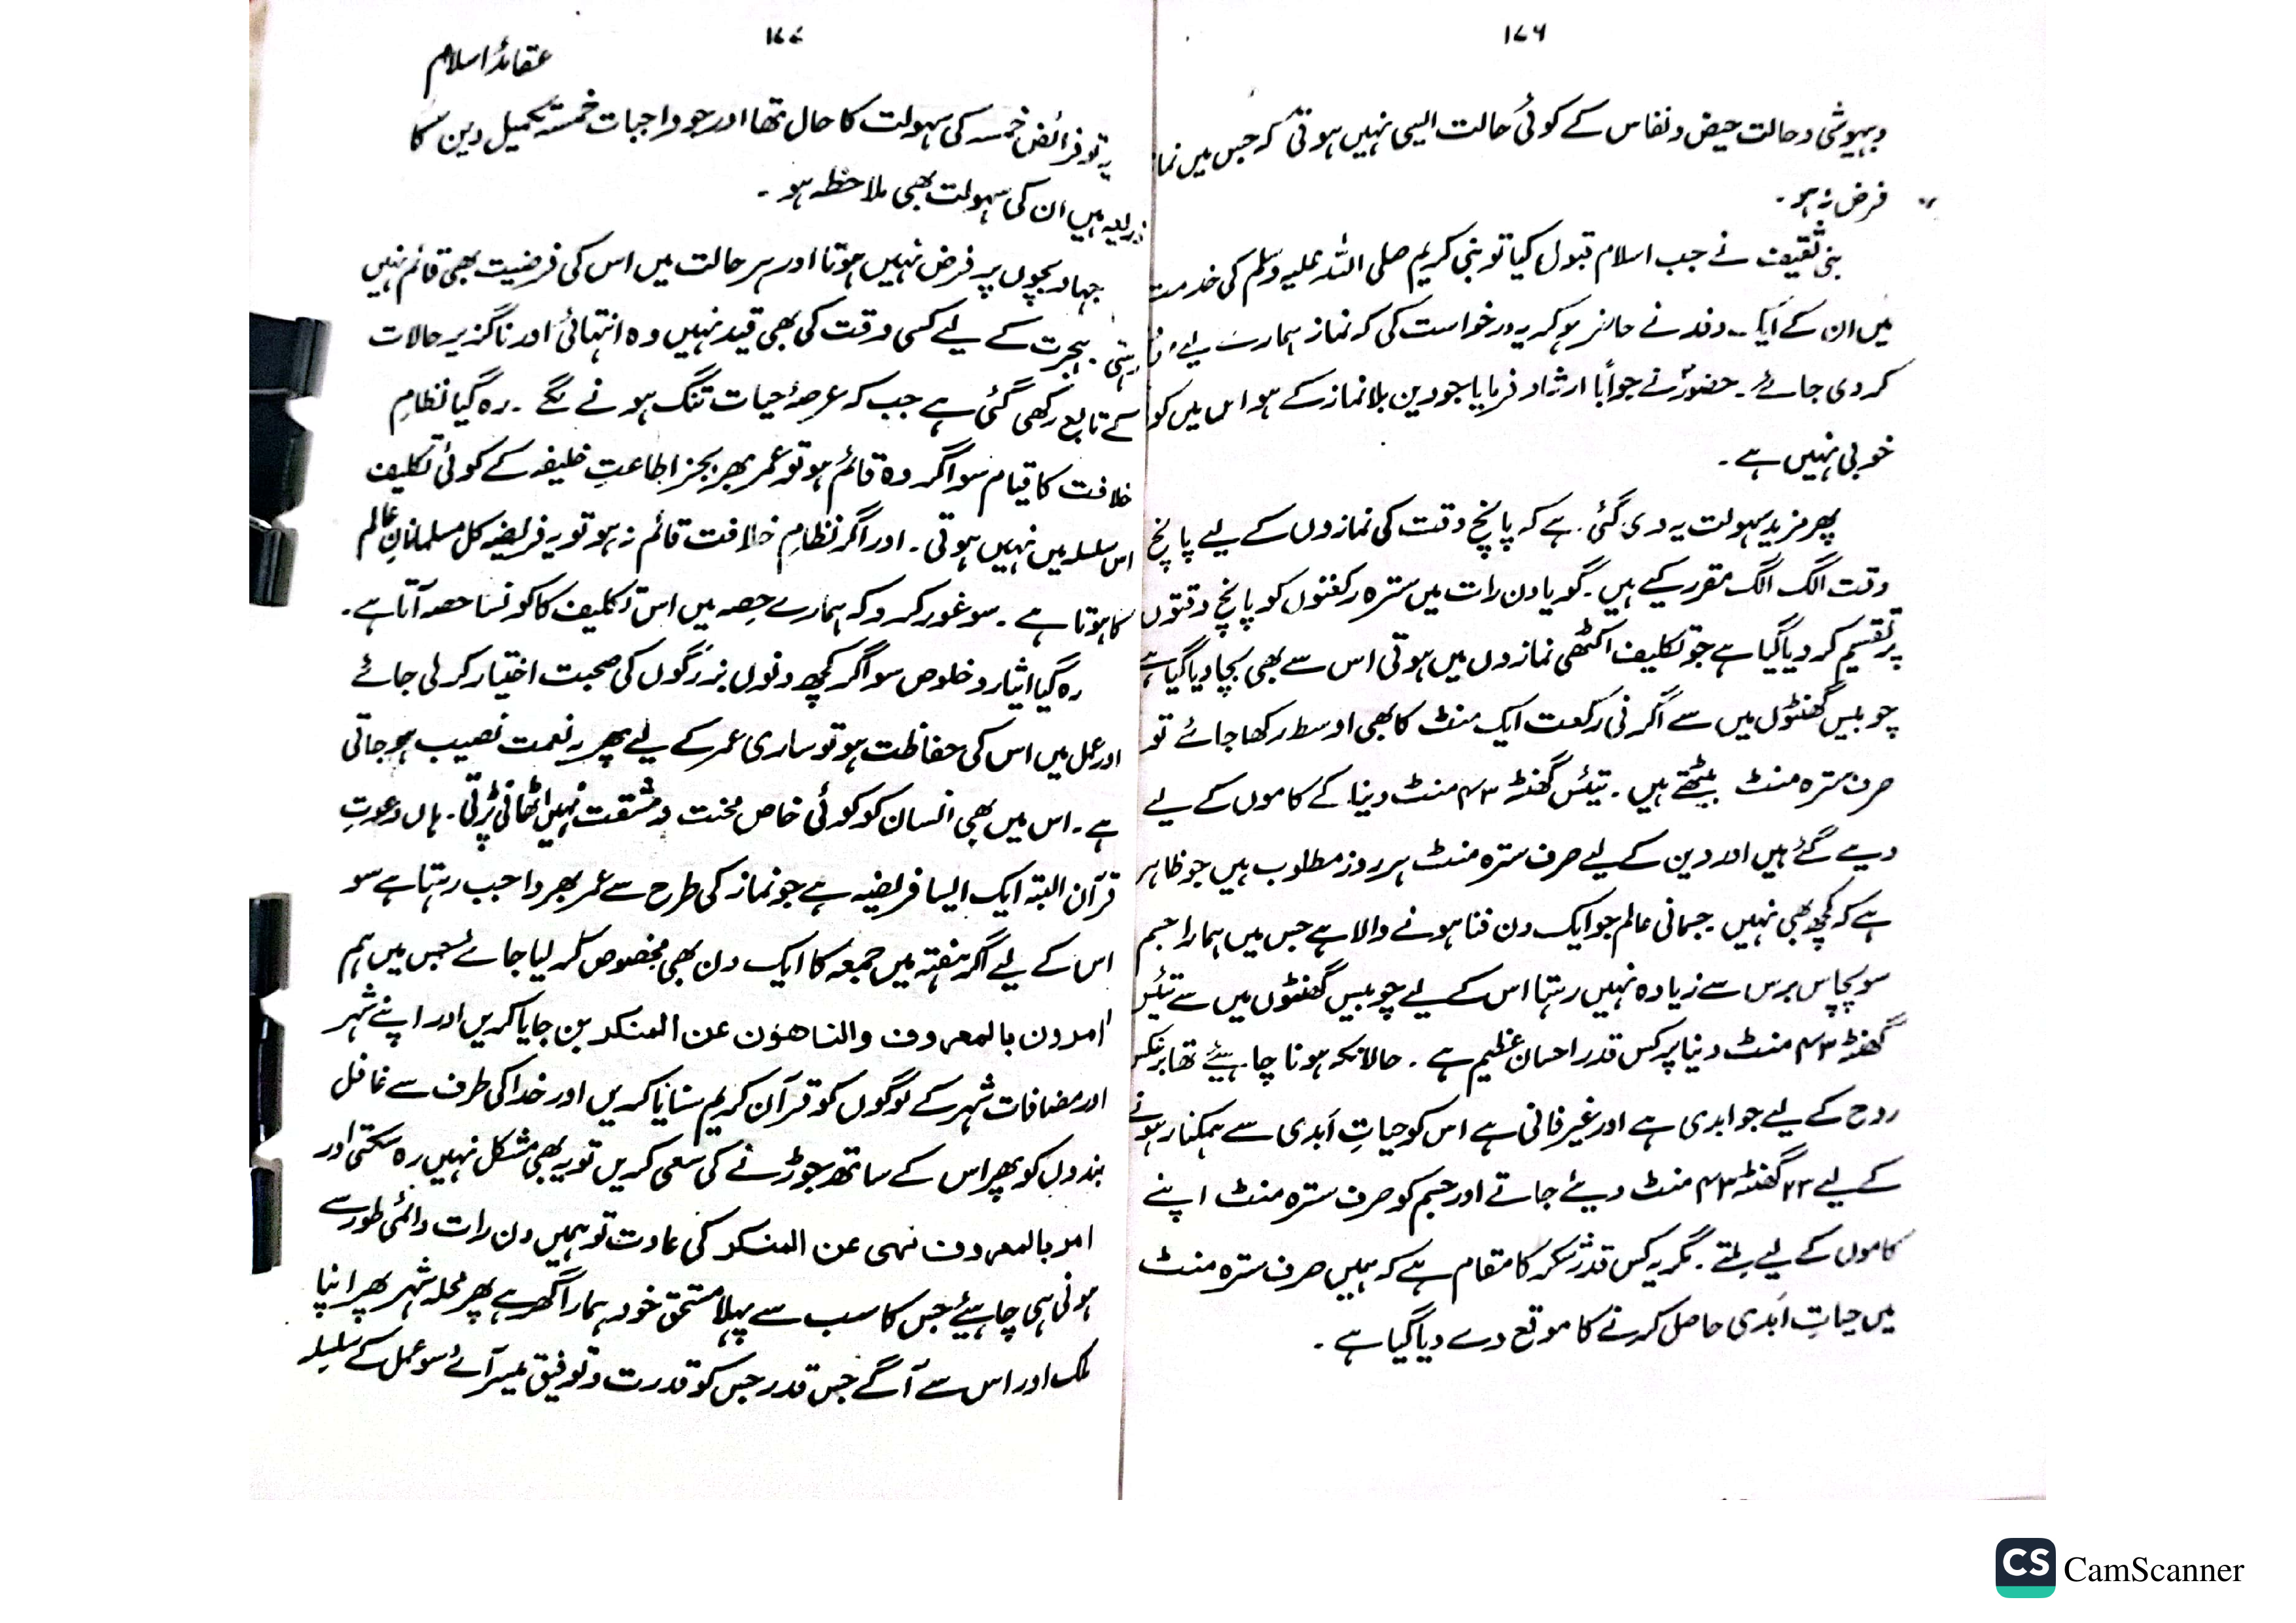 ۱۷۶
و بیہوشی و حالت حیض و نفاس کے کوئی حالت ایسی نہیں ہوتی کہ جس میں نما
فرض نہ ہو ۔
بنی ثقیف نے جب اسلام قبول کیا تو نبی کریم صلی اللہ علیہ وسلم کی خدمت
میں ان کے ایک وفد نے حاضر ہو کر یہ درخواست کی کہ نماز ہمارے لیے
کر دی جائے ۔ حضورؐ نے جواباً ارشاد فرمایا جو دین بلا نماز کے ہو اس میں کو
خوبی نہیں ہے ۔
پھر مزید سہولت یہ دی گئی ہے کہ پانچ وقت کی نمازوں کے لیے پانچ
وقت الگ الگ مقرر کیے ہیں ۔ گویا دن رات میں سترہ رکعتوں کو پانچ وقتوں
پر تقسیم کر دیا گیا ہے جو تکلیف اکٹھی نمازوں میں ہوتی اس سے بھی بچا دیا گیا ہے
چوبیس گھنٹوں میں سے اگر فی رکعت ایک منٹ کا بھی اوسط رکھا جائے تو
صرف سترہ منٹ بیٹھتے ہیں ۔ تیئس گھنٹہ ۴۳ منٹ دنیا کے کاموں کے لیے
دیے گئے ہیں اور دین کے لیے صرف سترہ منٹ ہر روز مطلوب ہیں جو ظاہر
ہے کہ کچھ بھی نہیں ۔ جسمانی عالم جو ایک دن فنا ہونے والا ہے جس میں ہمارا جسم
سو پچاس برس سے زیادہ نہیں رہتا اس کے لیے چوبیس گھنٹوں میں سے تیئس
گھنٹہ ۴۳ منٹ دنیا پر کس قدر احسان عظیم ہے ۔ حالانکہ ہونا چاہیئے تھا برعکس
روح کے لیے جو ابدی ہے اور غیر فانی ہے اس کو حیاتِ اَبدی سے ہمکنار ہونے
کے لیے ۲۳ گھنٹہ ۴۳ منٹ دیئے جاتے اور جسم کو صرف سترہ منٹ اپنے
کاموں کے لیے ملتے ۔ مگر یہ کس قدر شکر کا مقام ہے کہ ہمیں صرف سترہ منٹ
میں حیاتِ اَبدی حاصل کرنے کا موقع دے دیا گیا ہے ۔
۱۷۷
عقائدُ اسلام
یہ تو فرائض خمسہ کی سہولت کا حال تھا اور جو واجبات خمسہ تکمیل دین کا
ذریعہ ہیں ان کی سہولت بھی ملاحظہ ہو ۔
جہاد بچوں پر فرض نہیں ہوتا اور ہر حالت میں اس کی فرضیت بھی قائم نہیں
رہتی ۔ ہجرت کے لیے کسی وقت کی بھی قید نہیں وہ انتہائی اور ناگزیر حالات
کے تابع رکھی گئی ہے جب کہ عرصۂ حیات تنگ ہونے لگے ۔ رہ گیا نظامِ
خلافت کا قیام سو اگر وہ قائم ہو تو عمر بھر بجز اطاعتِ خلیفہ کے کوئی تکلیف
اس سلسلہ میں نہیں ہوتی ۔ اور اگر نظامِ خلافت قائم نہ ہو تو یہ فریضہ کل مسلمانانِ عالم
کا ہوتا ہے ۔ سو غور کرو کہ ہمارے حصہ میں اس تکلیف کا کونسا حصہ آتا ہے ۔
رہ گیا ایثار و خلوص سو اگر کچھ دنوں بزرگوں کی صحبت اختیار کر لی جائے
اور عمل میں اس کی حفاظت ہو تو ساری عمر کے لیے پھر یہ نعمت نصیب ہو جاتی
ہے ۔ اس میں بھی انسان کو کوئی خاص محنت و مشقت نہیں اٹھانی پڑتی ۔ ہاں دعوتِ
قرآن البتہ ایک ایسا فریضہ ہے جو نماز کی طرح سے عمر بھر واجب رہتا ہے سو
اس کے لیے اگر ہفتہ میں جمعہ کا ایک دن بھی مخصوص کر لیا جائے جس میں ہم
اٰمرون بالمعروف والناھون عن المنکر بن جایا کریں اور اپنے شہر
اور مضافات شہر کے لوگوں کو قرآن کریم سنایا کریں اور خدا کی طرف سے غافل
بندوں کو پھر اس کے ساتھ جوڑنے کی سعی کریں تو یہ بھی مشکل نہیں رہ سکتی اور
امر بالمعروف نہی عن المنکر کی عادت تو ہمیں دن رات دائمی طور سے
ہونی ہی چاہیئے جس کا سب سے پہلا مستحق خود ہمارا گھر ہے پھر محلہ شہر پھر اپنا
ملک اور اس سے آگے جس قدر جس کو قدرت و توفیق میسر آئے سو عمل کے سلسلہ
CS CamScanner